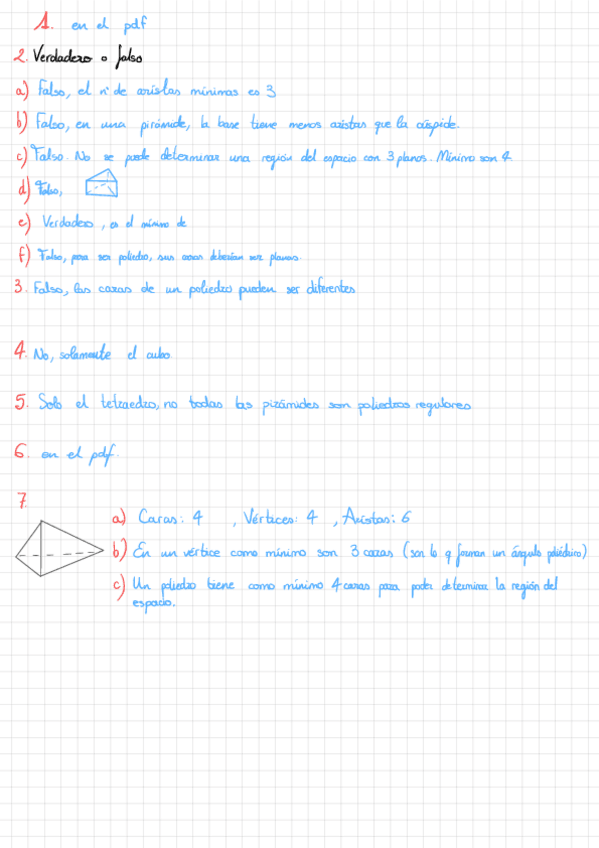 1. en el pdf
2. Verdadero o falso
a) Falso, el nº de aristas mínimas es 3
b) Falso, en una pirámide, la base tiene menos aristas que la cúspide.
c) Falso. No se puede determinar una región del espacio con 3 planos. Mínimo son 4
d) Falso,
e) Verdadero, es el mínimo de
f) Falso, para ser poliedro, sus caras deberían ser planas.
3. Falso, las caras de un poliedro pueden ser diferentes
4. No, solamente el cubo.
5. Solo el tetraedro, no todas las pirámides son poliedros regulares
6. en el pdf.
7.
a) Caras: 4 , Vértices: 4 , Aristas: 6
b) En un vértice como mínimo son 3 caras (son lo q forman un ángulo poliédrico)
c) Un poliedro tiene como mínimo 4 caras para poder determinar la región del
espacio.